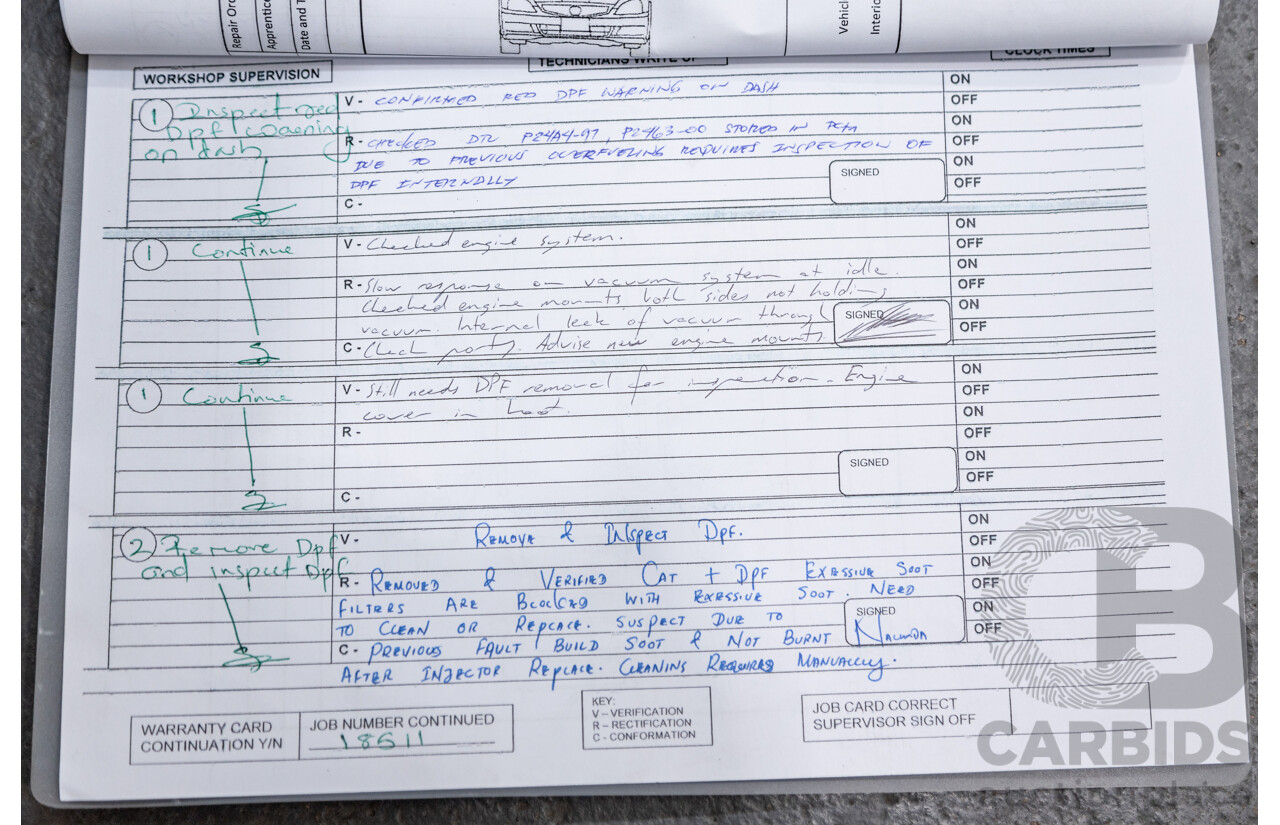 Repair Ord
Apprentice
Date and T
Vehicl
Interio
WORKSHOP SUPERVISION
TECHNICIANS WRITE UP
CLOCK TIMES
1 Inspect red
Dpf warning
on dash
V - CONFIRMED RED DPF WARNING ON DASH
R - CHECKED DTC P24A4-97, P2463-00 STORED IN
DUE TO PREVIOUS OVERFUELING REQUIRES INSPECTION OF
DPF INTERNALLY
C -
SIGNED
ON
OFF
ON
OFF
ON
OFF
1 Continue
V - Checked engine system.
R - Slow response on vacuum system at idle.
Checked engine mounts both sides not holding
vacuum. Internal leak of vacuum through
C - Check ports. Advise new engine mounts
SIGNED
ON
OFF
ON
OFF
ON
OFF
1 Continue
V - Still needs DPF removal for inspection. Engine
cover in boot.
R -
C -
SIGNED
ON
OFF
ON
OFF
ON
OFF
2 Remove Dpf
and inspect Dpf
V - REMOVE & INSPECT DPF.
R - REMOVED & VERIFIED CAT + DPF EXESSIVE SOOT
FILTERS ARE BLOCKED WITH EXESSIVE SOOT. NEED
TO CLEAN OR REPLACE. SUSPECT DUE TO
C - PREVIOUS FAULT BUILD SOOT & NOT BURNT
AFTER INJECTOR REPLACE. CLEANING REQUIRED MANUALLY.
SIGNED
ON
OFF
ON
OFF
ON
OFF
WARRANTY CARD
CONTINUATION Y/N
JOB NUMBER CONTINUED
18511
KEY:
V – VERIFICATION
R - RECTIFICATION
C - CONFORMATION
JOB CARD CORRECT
SUPERVISOR SIGN OFF
CARBIDS